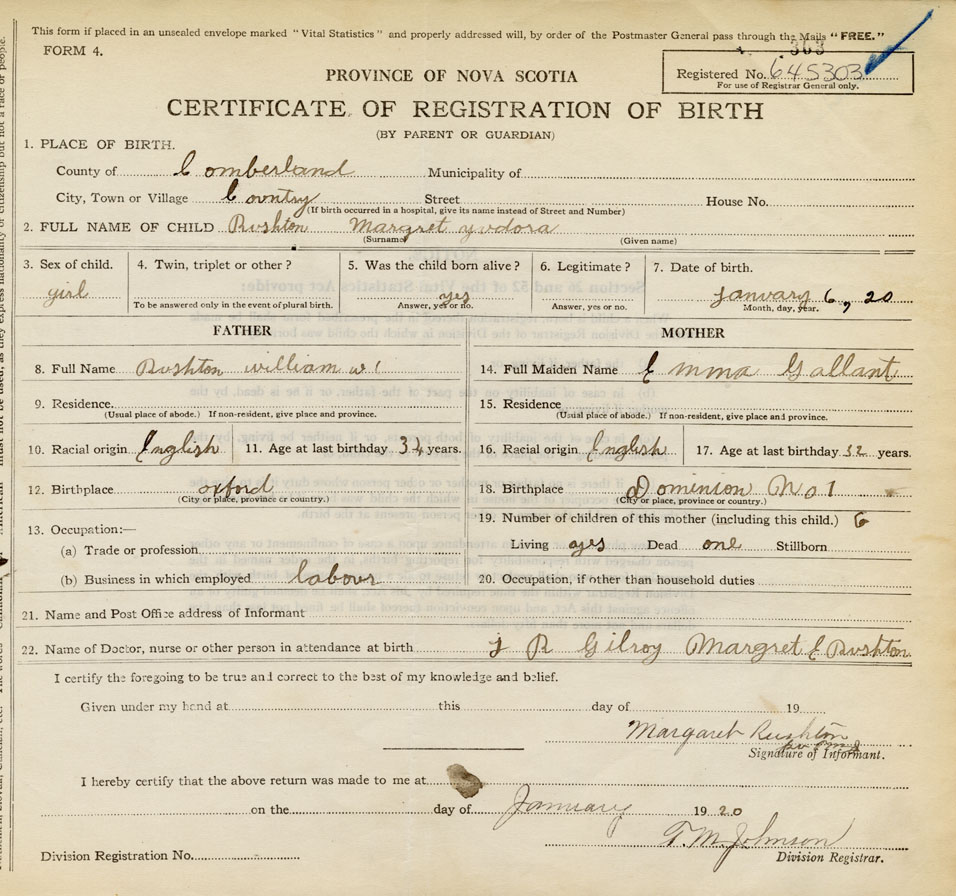 This form if placed in an unsealed envelope marked "Vital Statistics" and properly addressed will, by order of the Postmaster General pass through the Mails "FREE."
FORM 4.
363
PROVINCE OF NOVA SCOTIA
Registered No. 645303
For use of Registrar General only.
CERTIFICATE OF REGISTRATION OF BIRTH
(BY PARENT OR GUARDIAN)
1. PLACE OF BIRTH.
County of Comberland Municipality of
City, Town or Village Country Street House No.
(If birth occurred in a hospital, give its name instead of Street and Number)
2. FULL NAME OF CHILD Rushton Margret yudora
(Surname) (Given name)
3. Sex of child. 4. Twin, triplet or other? 5. Was the child born alive? 6. Legitimate? 7. Date of birth.
girl yes january 6, 20
To be answered only in the event of plural birth. Answer, yes or no. Answer, yes or no. Month, day, year.
FATHER MOTHER
8. Full Name Rushton william w 14. Full Maiden Name Emma Gallant
9. Residence. 15. Residence
(Usual place of abode.) If non-resident, give place and province. (Usual place of abode.) If non-resident, give place and province.
10. Racial origin English 11. Age at last birthday 34 years. 16. Racial origin English 17. Age at last birthday 32 years.
12. Birthplace oxford 18. Birthplace Dominion No 1
(City or place, province or country.) (City or place, province or country.)
13. Occupation:— 19. Number of children of this mother (including this child.) 6
(a) Trade or profession Living Dead one Stillborn
(b) Business in which employed labour 20. Occupation, if other than household duties
21. Name and Post Office address of Informant
22. Name of Doctor, nurse or other person in attendance at birth j R Gilroy Margret E Rushton
I certify the foregoing to be true and correct to the best of my knowledge and belief.
Given under my hand at this day of 19
Margaret Rushton
Signature of Informant.
I hereby certify that the above return was made to me at
on the day of January 19 20
T. M. Johnson
Division Registration No. Division Registrar.